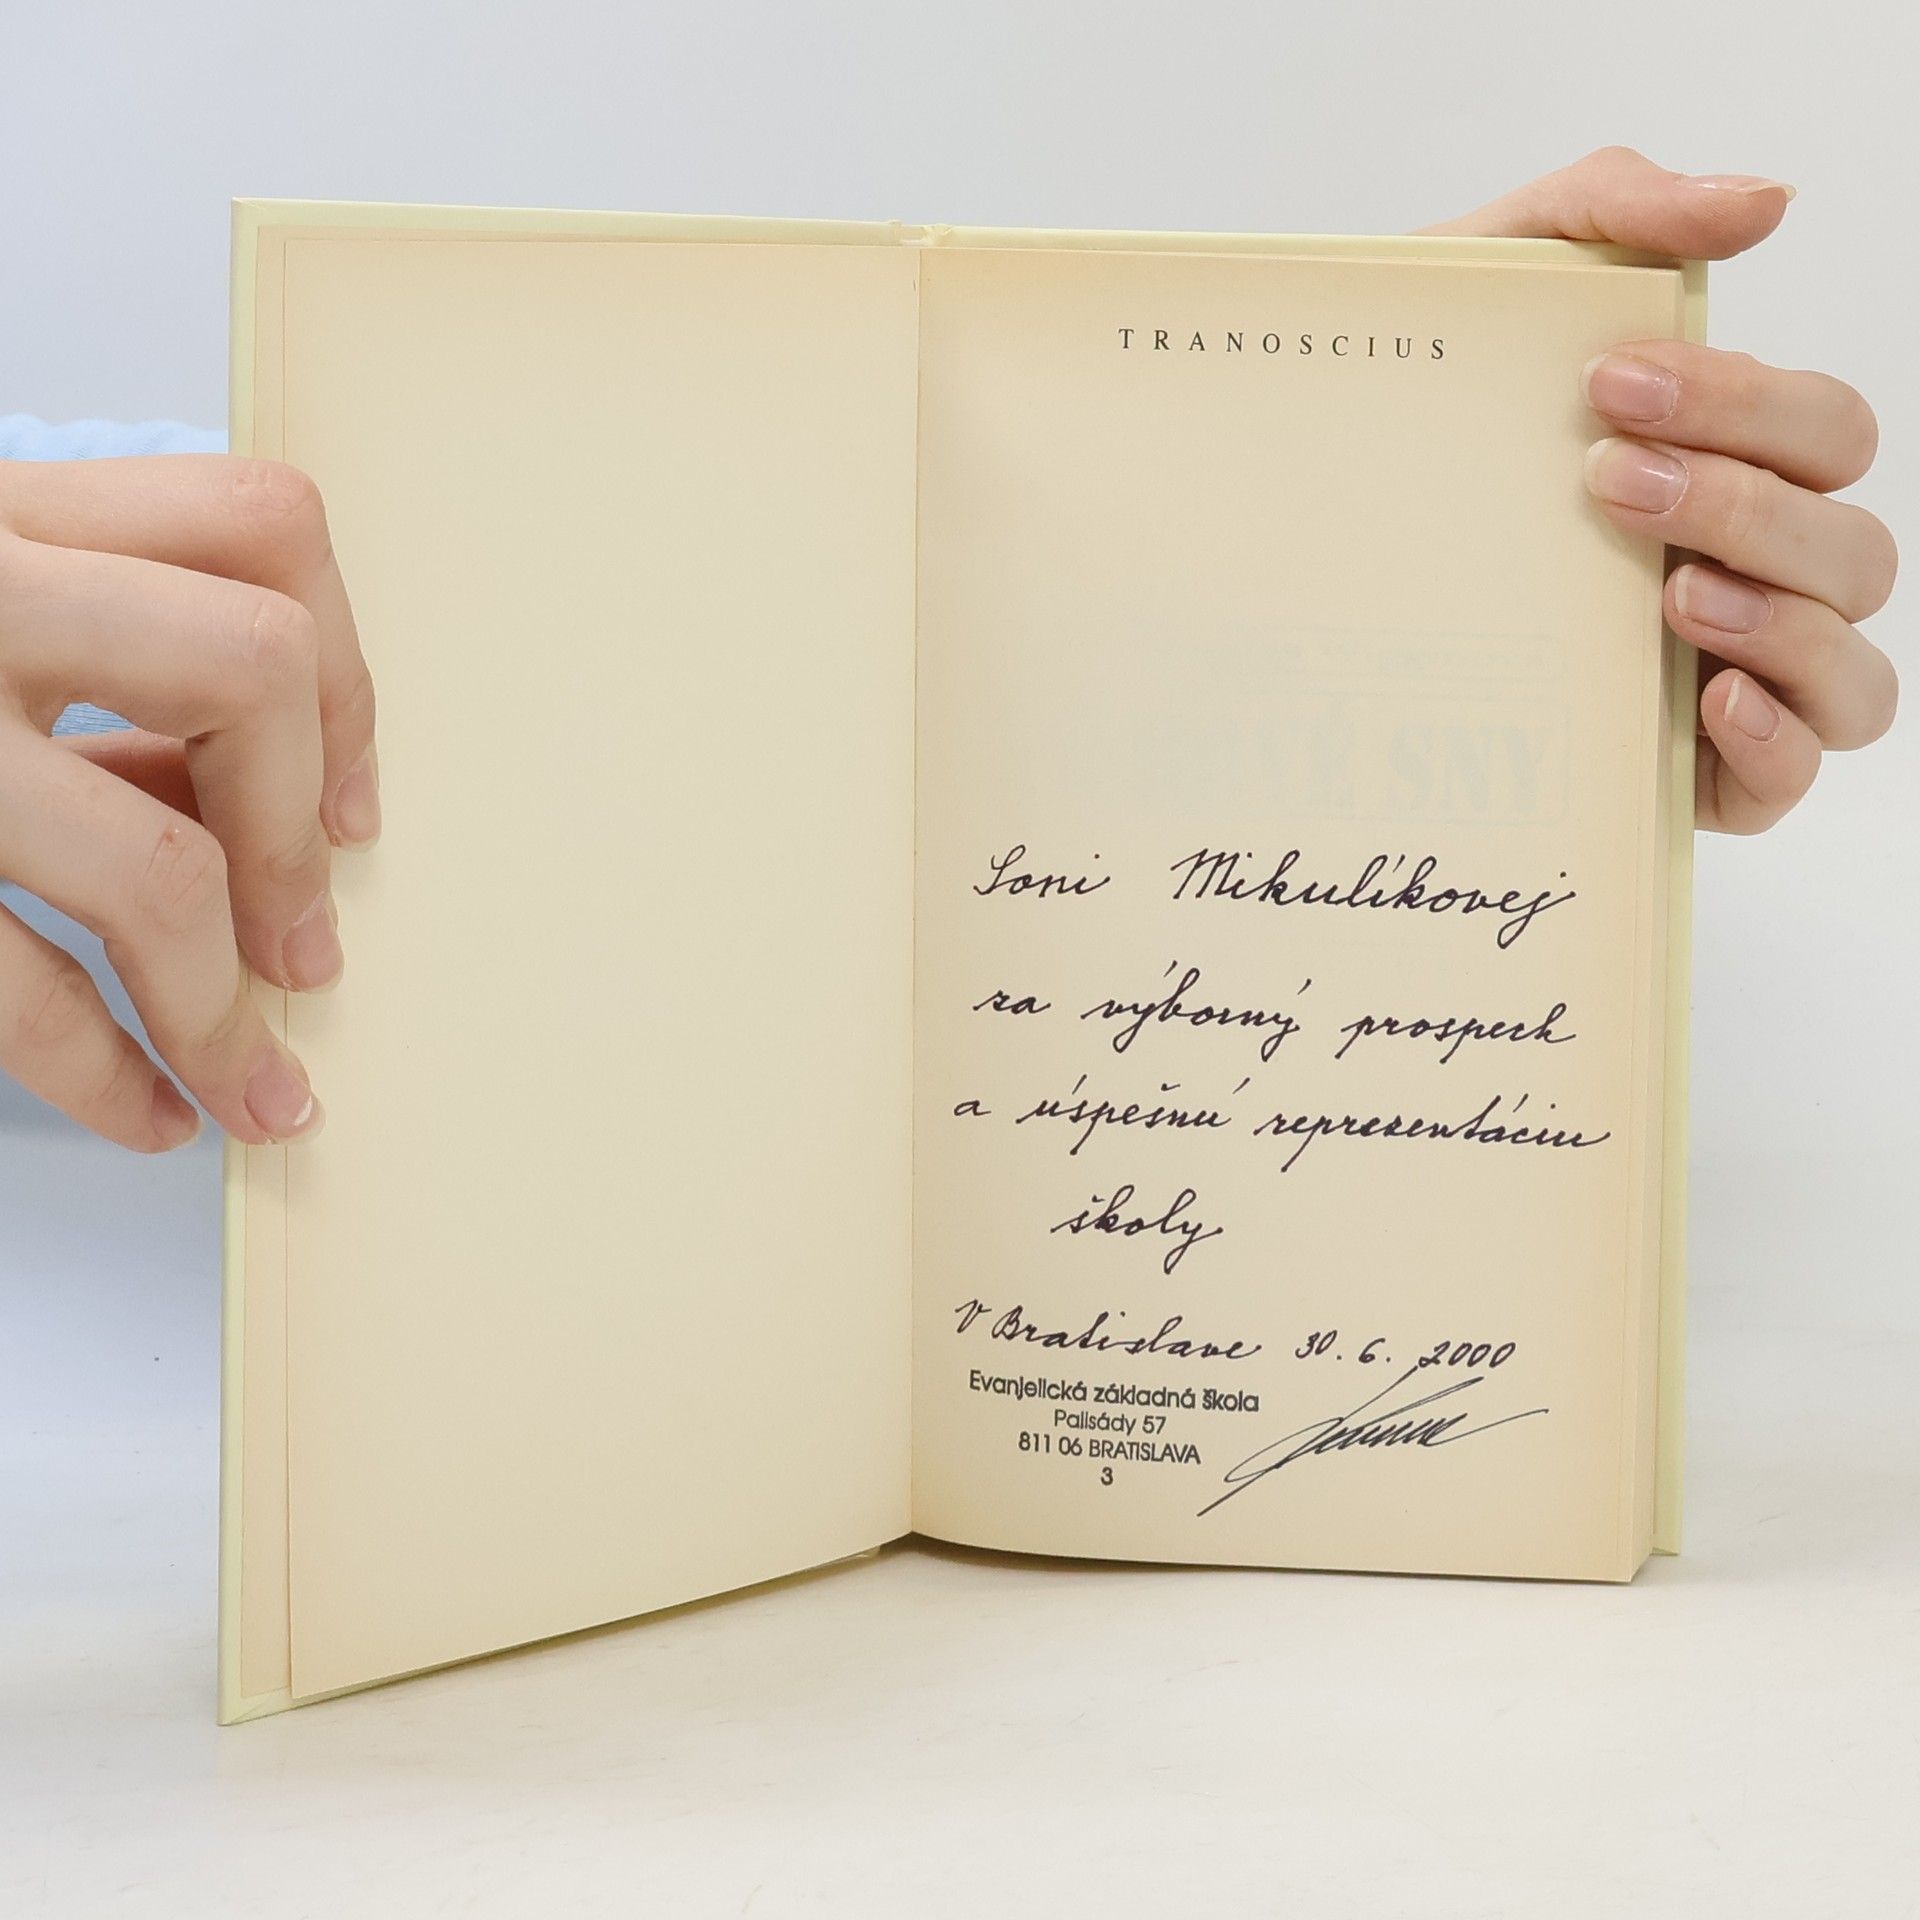 TRANOSCIUS
Soni Mikulíkovej
za výborný prospech
a úspešnú reprezentáciu
školy
V Bratislave 30. 6. 2000
Evanjelická základná škola
Palisády 57
811 06 BRATISLAVA
3